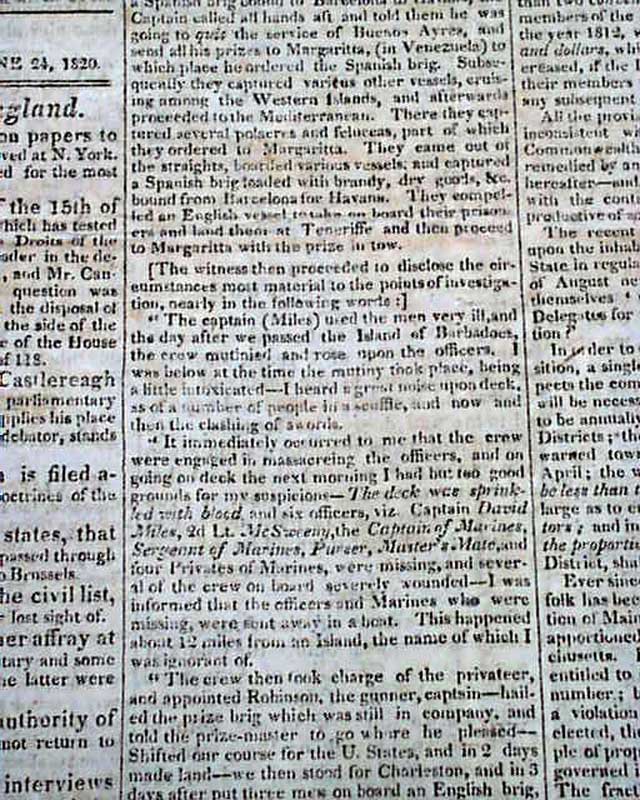 NE 24, 1820.
gland.
on papers to
ved at N. York.
ed for the most
f the 15th of
which has tested
Droits of the
ader in the de-
, and Mr. Can-
question was
the disposal of
the side of the
e of the House
of 118.
Castlereagh
parliamentary
pplies his place
debator, stands
is filed a-
octrines of the
states, that
passed through
o Brussels.
he civil list,
r lost sight of.
her affray at
tary and some
he latter were
authority of
not return to
interviews
a Spanish brig bound to Barcelona to Havana, the
Captain called all hands aft and told them he was
going to quit the service of Buenos Ayres, and
send all his prizes to Margaritta, (in Venezuela) to
which place he ordered the Spanish brig. Subse-
quently they captured various other vessels, cruis-
ing among the Western Islands, and afterwards
proceeded to the Mediterranean. There they cap-
tured several polacres and feluccas, part of which
they ordered to Margaritta. They came out of
the straights, boarded various vessels, and captured
a Spanish brig loaded with brandy, dry goods, &c.
bound from Barcelona for Havana. They compel-
led an English vessel to take on board their prison-
ers and land them at Teneriffe and then proceed
to Margaritta with the prize in tow.
[The witness then proceeded to disclose the cir-
cumstances most material to the points of investiga-
tion, nearly in the following words :]
" The captain (Miles) used the men very ill, and
the day after we passed the Island of Barbadoes,
the crew mutinied and rose upon the officers. I
was below at the time the mutiny took place, being
a little intoxicated—I heard a great noise upon deck,
as of a number of people in a scuffle, and now and
then the clashing of swords.
" It immediately occurred to me that the crew
were engaged in massacreing the officers, and on
going on deck the next morning I had but too good
grounds for my suspicions—The deck was sprink-
led with blood, and six officers, viz. Captain David
Miles, 2d Lt. McSweeny, the Captain of Marines,
Sergeant of Marines, Purser, Master's Mate, and
four Privates of Marines, were missing, and sever-
al of the crew on board severely wounded—I was
informed that the officers and Marines who were
missing, were sent away in a boat. This happened
about 12 miles from an Island, the name of which I
was ignorant of.
" The crew then took charge of the privateer,
and appointed Robinson, the gunner, captain—hail-
ed the prize brig which was still in company, and
told the prize-master to go where he pleased—
Shifted our course for the U. States, and in 2 days
made land—we then stood for Charleston, and in 3
days after put three men on board an English brig,
than two
members of the
the year 1812, w
and dollars, wh
ereased, if the
their members
any subsequent
All the provi
inconsistent w
Commonwealth
remedied by an
hereafter—and
with the cont
productive of
The recent
upon the inhab
State in regula
of August ne
themselves
Delegates for
tion ?
In order to
sition, a single
pects the com
will be necess
to be annually
Districts ; th
warned town
April ; the
be less than
large as to e
tors ; and in
the proportio
District, sha
Ever since
folk has bee
tion of Main
apportioned
chusetts.
entitled to
number ;
a violation
elected, the
ple of prop
governed
The fract